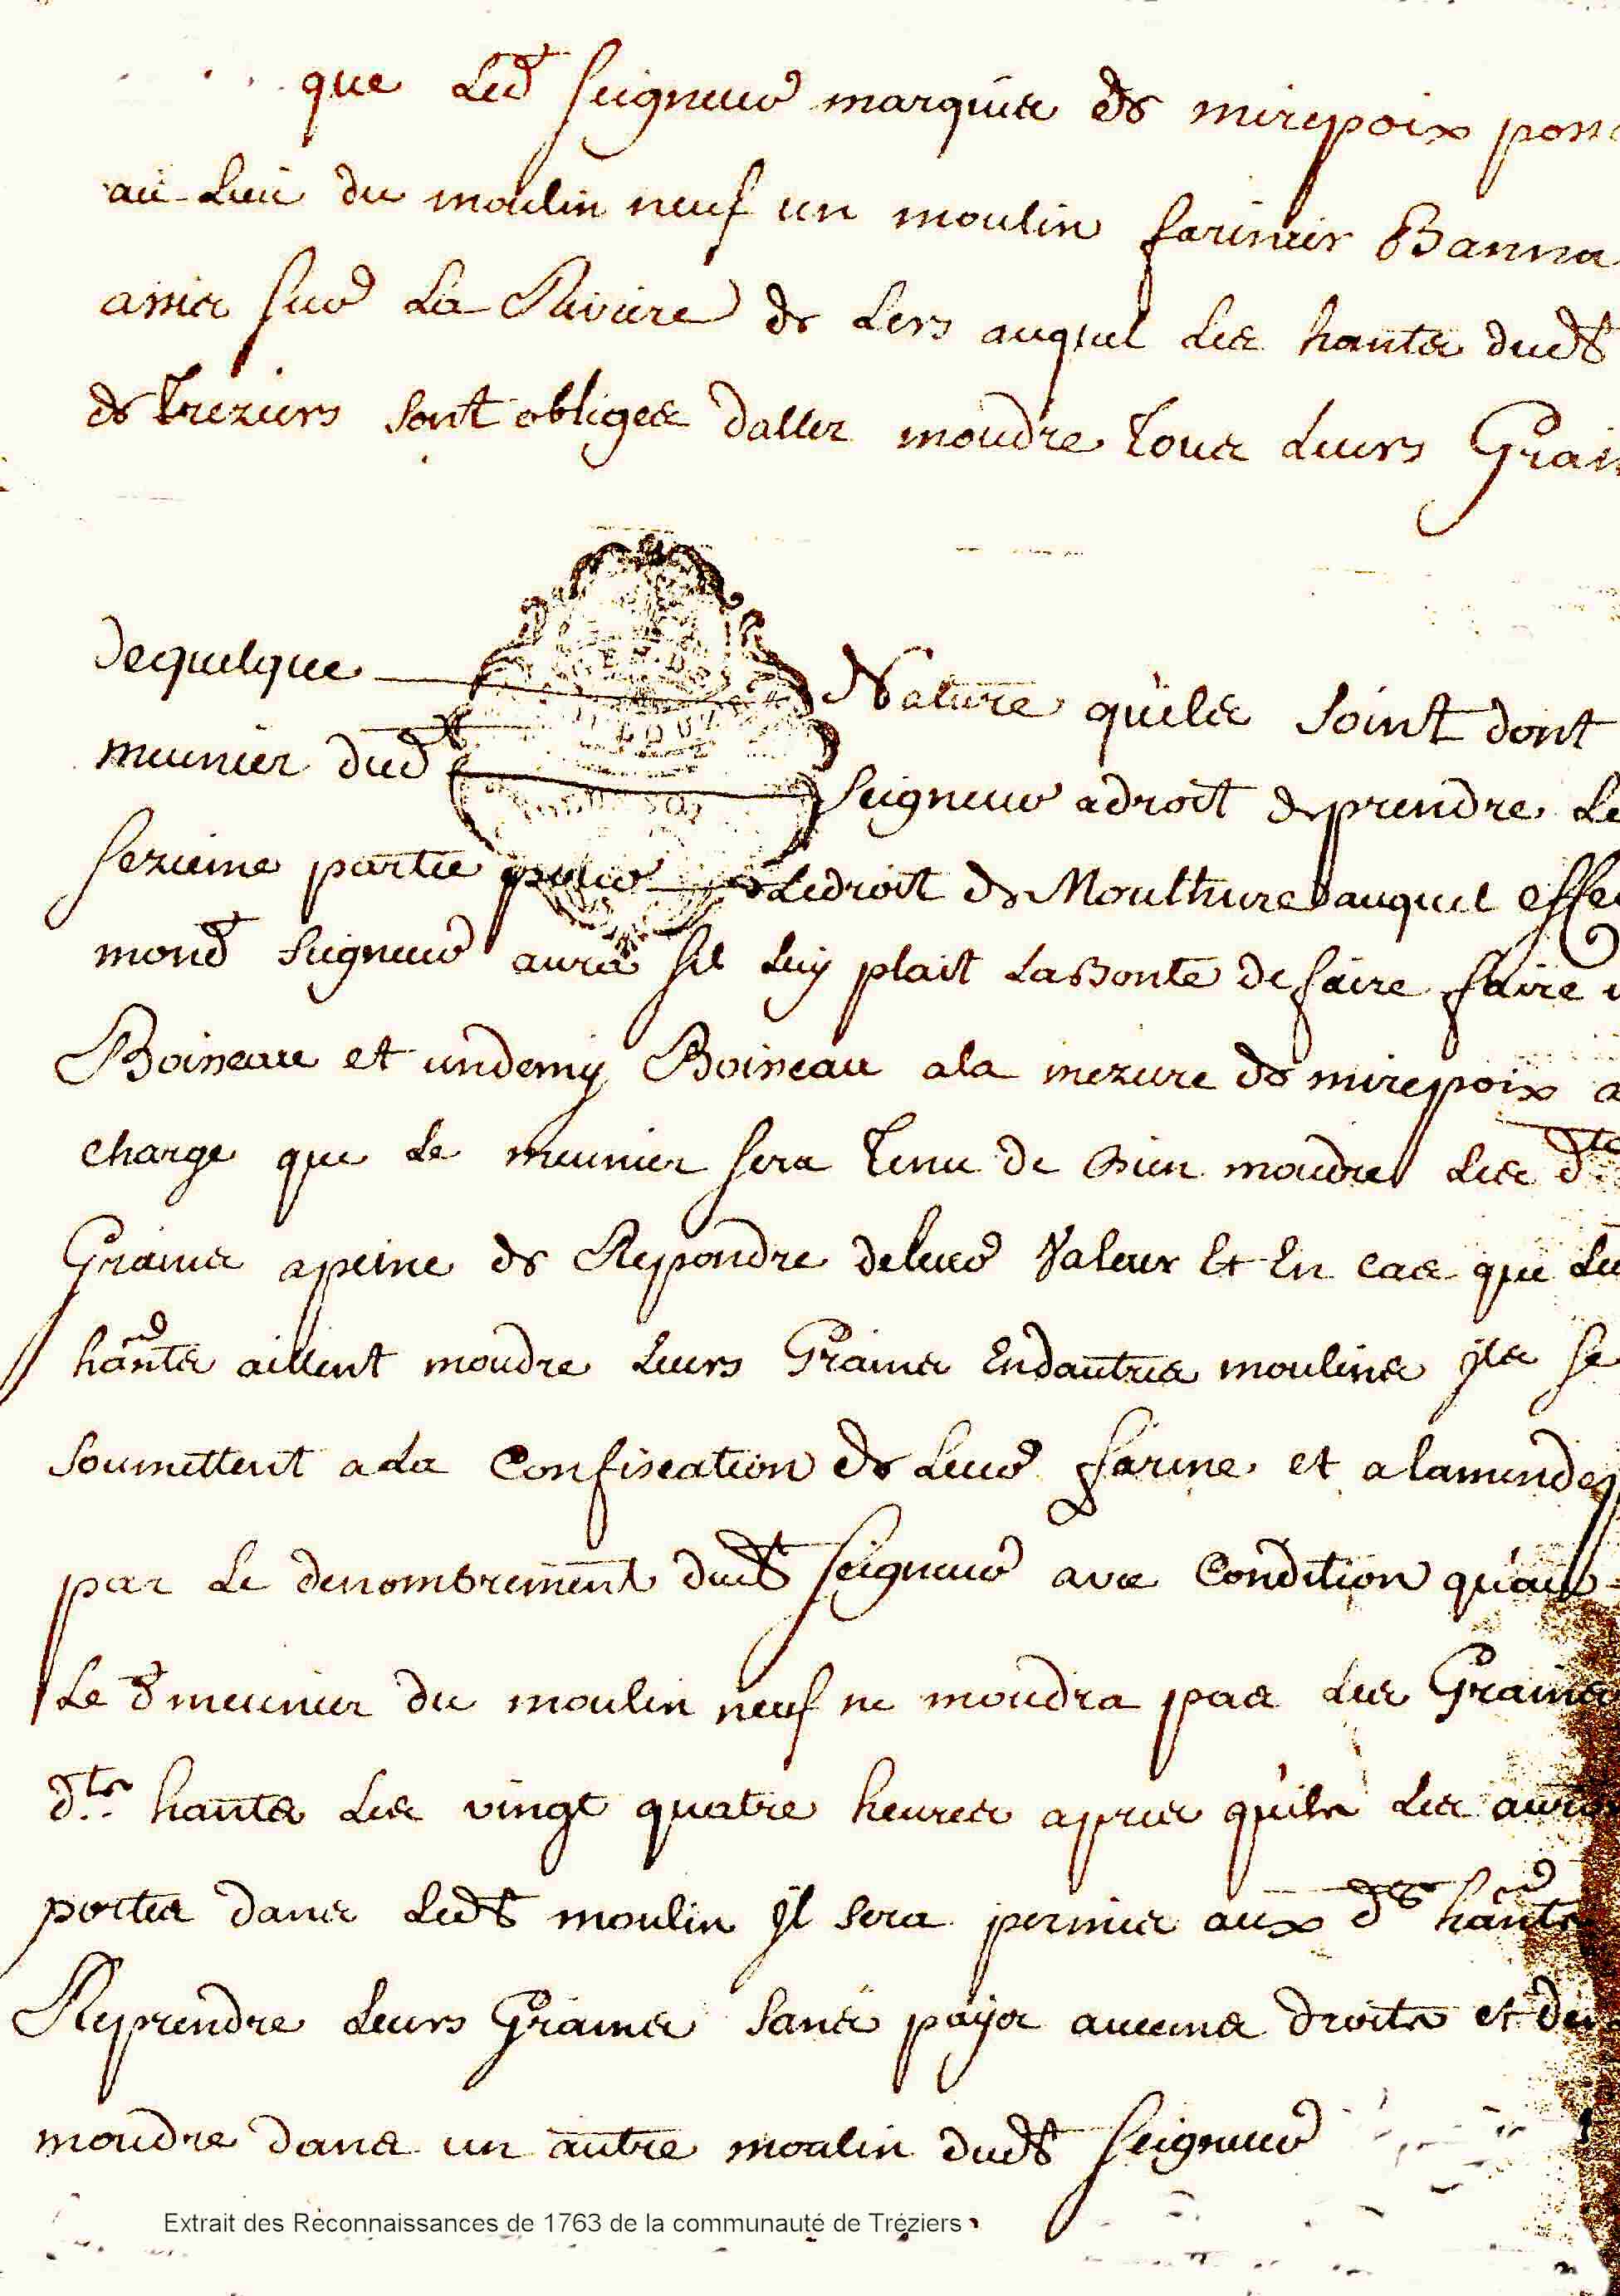 que Led Seigneur marquis de mirepoix poss
au Lieu du moulin neuf un moulin farinier Banna
assis sur La Riviere de Lers auquel Les hants dudt
de treziers sont obliges daller moudre tous Leurs Grain
dequelque Nature quils soint dont
meunier dud Seigneur adroit de prendre Le
sezieme partie pour Ledroit de Moulthure auquel effe
mond Seigneur aura sil Luy plait LaBonte de faire faire
Boisseau et undemy Boisseau ala mezure de mirepoix a
charge que Le meunier sera tenu de bien moudre Les dts
Grains apeine de Repondre deleur Valeur Et En cas que Les
hants aillent moudre Leurs Grains Endautres moulins jls se
soumettent a La Confiscation de Leur farine et alamende
par Le denombrement dudt Seigneur avec Condition quau
Le d meunier du moulin neuf ne moudra pas Les Grains
dts hants Les vingt quatre heures apres quils Les auro
portes dans Ledt moulin jl sera permis aux ds hants
Reprendre Leurs Grains sans payer aucuns droits et de
moudre dans un autre moulin dudt Seigneur
Extrait des Réconnaissances de 1763 de la communauté de Tréziers